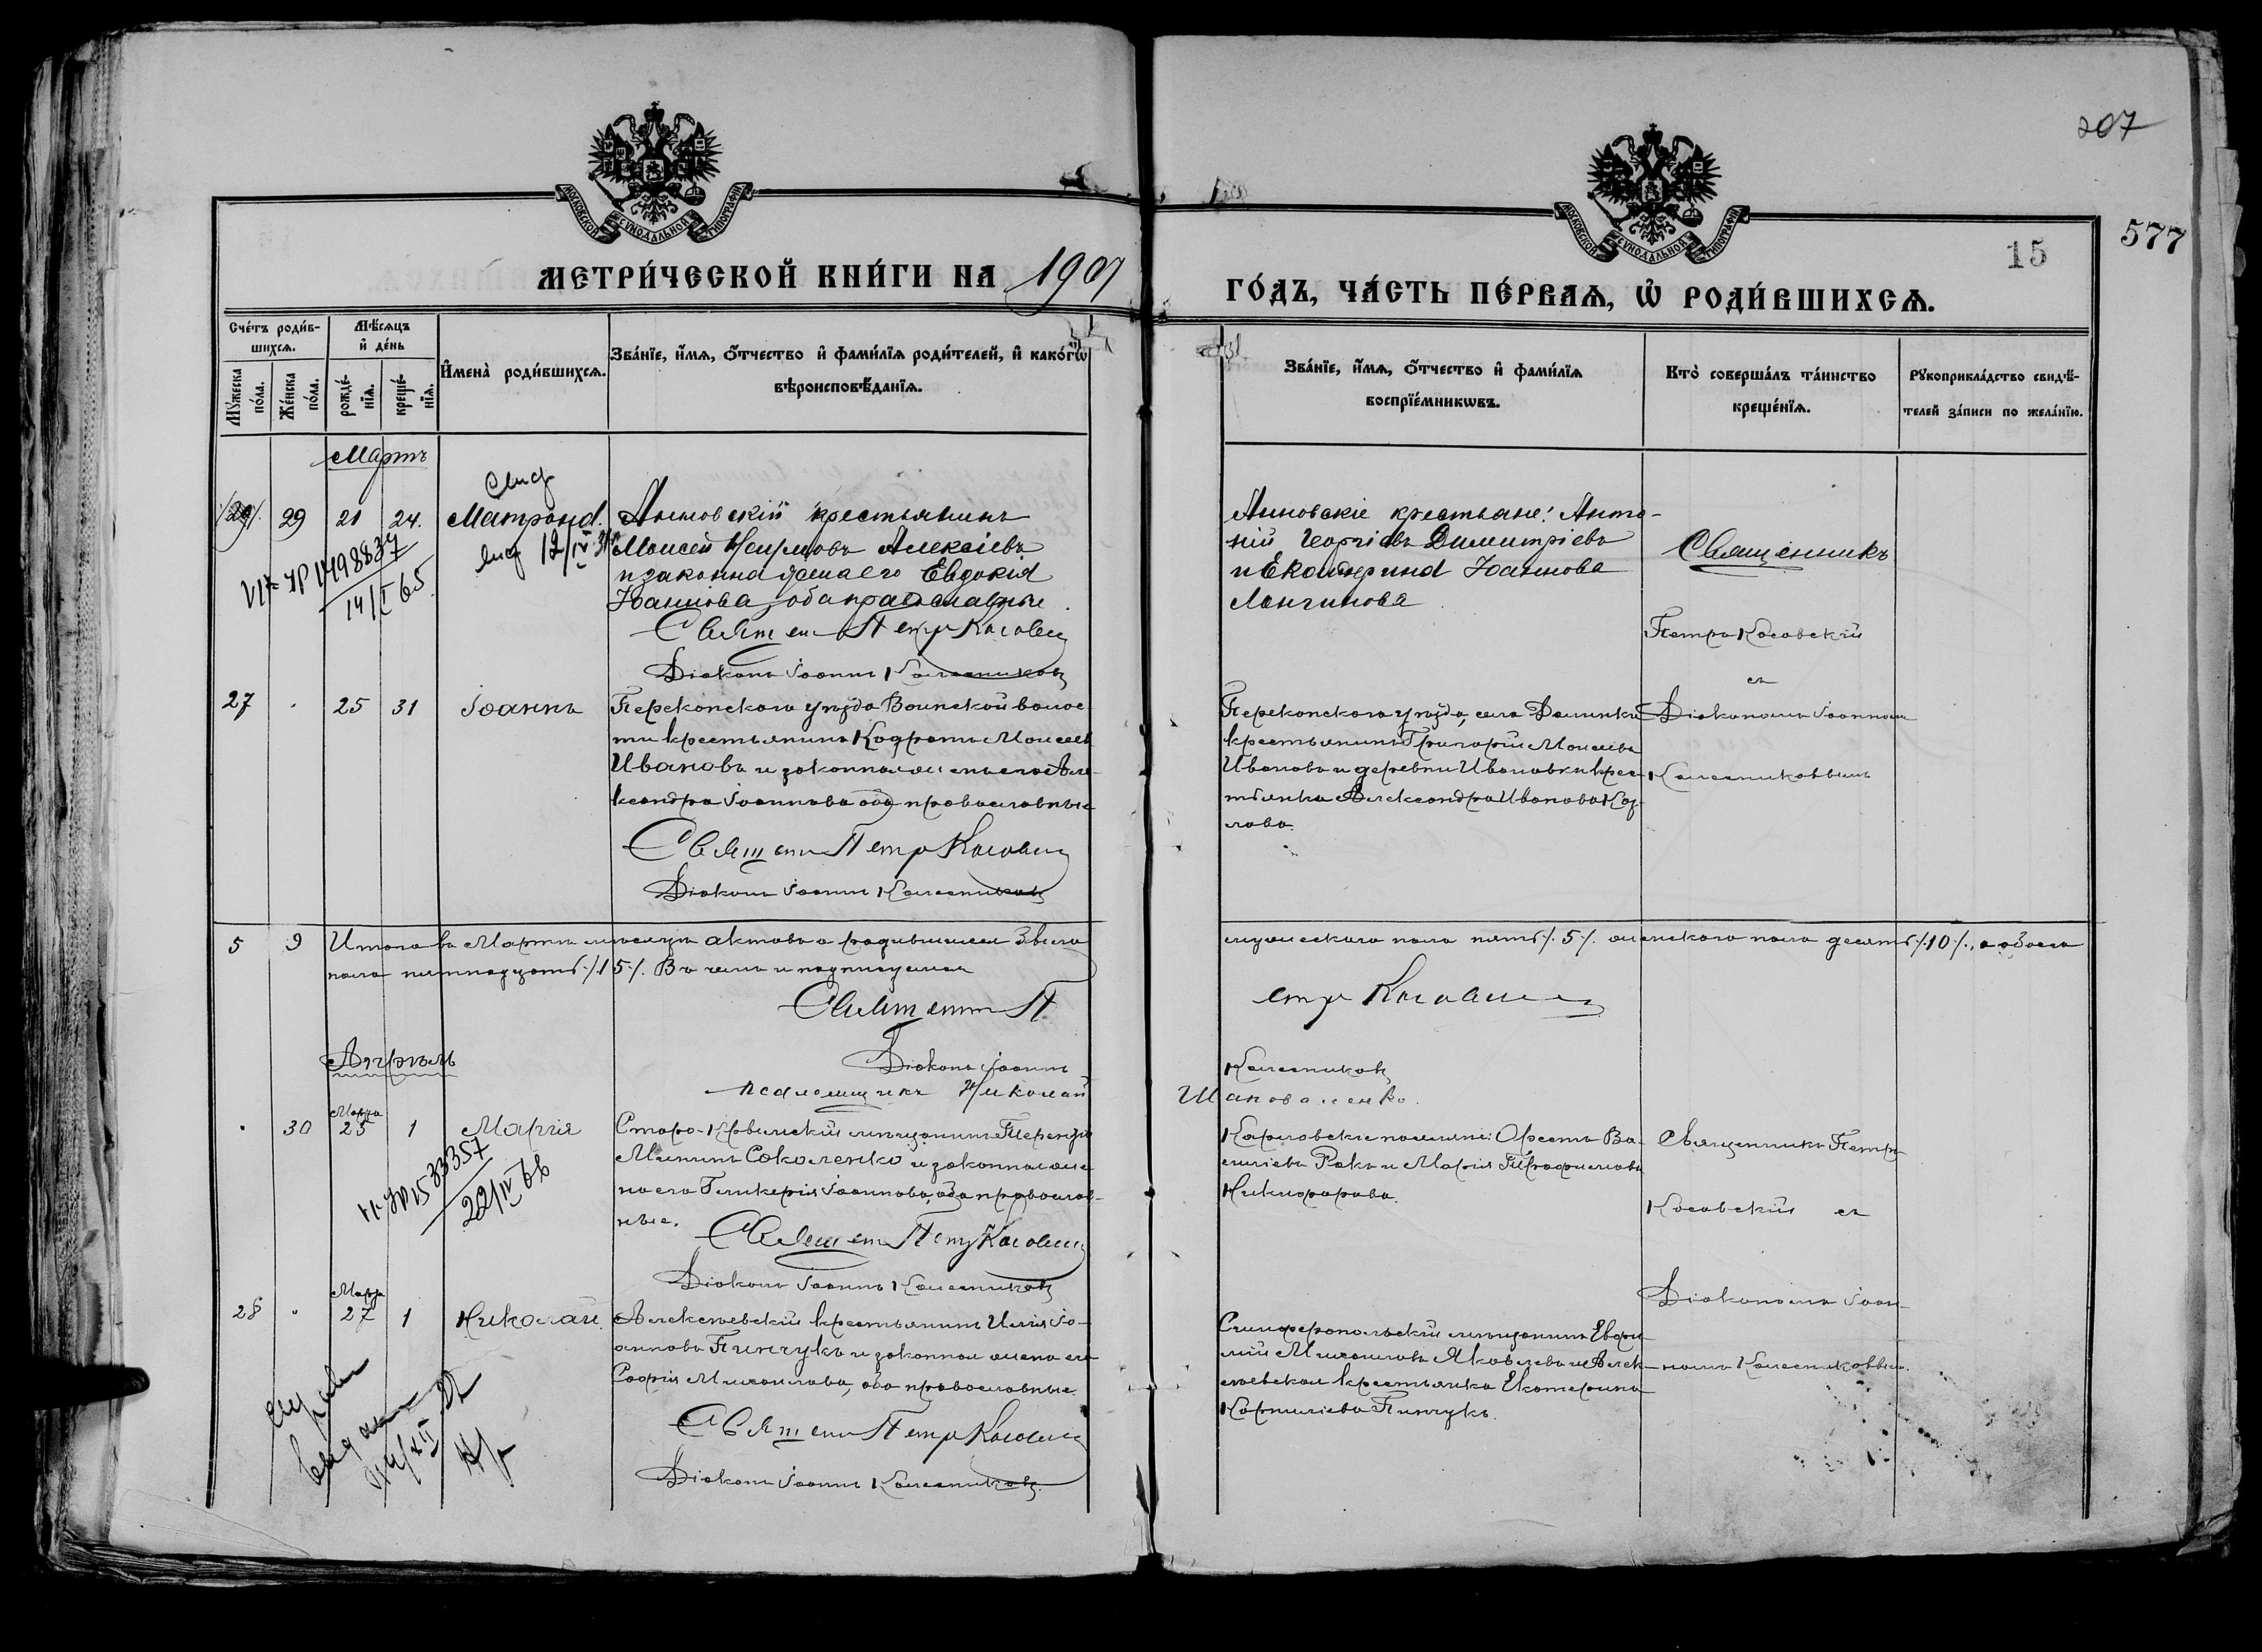 207
577
15
МОСКОВСКОЙ СѴНОДАЛЬНОЙ ТИПОГРАФІИ
МОСКОВСКОЙ СѴНОДАЛЬНОЙ ТИПОГРАФІИ
МЕТРИ́ЧЕСКОЙ КНИ́ГИ НА 1907
ГО́ДЪ, ЧА́СТЬ ПЕ́РВАѦ, Ѡ҆ РОДИ́ВШИХСѦ.
Сче́тъ роди́в-
шихсѧ.
Мѣ́сѧцъ
и҆ де́нь
Мꙋ́жеска по́ла.
Же́нска по́ла.
рожде́-нїѧ.
креще́-нїѧ.
И҆мена̀ роди́вшихсѧ.
Зва́нїе, и҆́мѧ, ѻ҆́тчество и҆ фами́лїѧ роди́телей, и҆ како́гѡ
вѣроисповѣ́данїѧ.
Зва́нїе, и҆́мѧ, ѻ҆́тчество и҆ фами́лїѧ
воспрїе́мникѡвъ.
Кто̀ соверша́лъ та́инство
креще́нїѧ.
Рꙋкоприкла́дство свидѣ́-
телей за́писи по жела́нїю.
Мартъ
29 21 24. Матрона.
крестьянинъ
Моисей Алексіевъ
и законная жена его Евдокія
Іоаннова, оба православные.
Священ Петр Косовск
Діаконъ Іоаннъ Колесниковъ
14/I 65.
крестьяне: Анто-
ній Георгіевъ Димитріевъ
и Екатерина Іоаннова
Лонгинова
Священникъ
Петръ Косовскій
съ
Діакономъ Іоанномъ
Колесниковымъ
27 25 31 Іоаннъ
Перекопскаго уѣзда Воинской волос-
ти крестьянинъ Кодратъ Моисеевъ
Ивановъ и законная жена его Але-
ксандра Іоаннова оба православные
Священ Петр Косовск
Діаконъ Іоаннъ Колесниковъ
Перекопскаго уѣзда, села
крестьянинъ Григорій Моисеевъ
Ивановъ и деревни Ивановки крес-
тьянка Александра Иванова Коз-
лова.
5 9 Итого въ Мартѣ мѣсяцѣ актовъ о родившихся
мужескаго пола пять /.5/. женскаго пола десять /.10/., а обоего
пола пятнадцать /.15/. Въ чемъ и подписуемся
Священ Петр Косовск
Діаконъ Іоаннъ Колесниковъ
псаломщикъ Николай Шаповаленко.
Апрѣль
30 Марта 25 1 Марія
Старо-Крымскій мѣщанинъ Терентій
Мининъ Соколенко и законная же-
на его Гликерія Іоаннова, оба православ-
ные.
Священ Петр Косовск
Діаконъ Іоаннъ Колесниковъ
22/IV 66
Карловскіе поселяне: Орестъ Ва-
силіевъ Ракъ и Марія Трофимова
Никифорова.
Священникъ Петръ
Косовскій съ
Діакономъ Іоан-
номъ Колесниковымъ.
28 Марта 27 1 Николай.
Алексѣевскій крестьянинъ Илія Іо-
анновъ Пинчукъ и законная жена его
Софія Михаилова, оба православные.
Священ Петр Косовск
Діаконъ Іоаннъ Колесниковъ.
Симферопольскій мѣщанинъ Евфи-
мій Михаиловъ Яковлевъ и Алек-
сѣевская крестьянка Екатерина
Корниліева Пинчукъ.